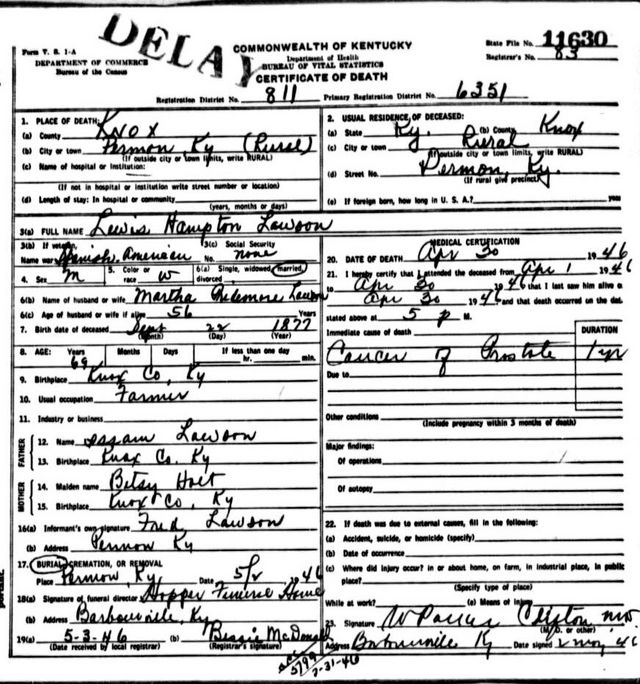 DELAY
Form V. S. 1-A
DEPARTMENT OF COMMERCE
Bureau of the Census
COMMONWEALTH OF KENTUCKY
Department of Health
BUREAU OF VITAL STATISTICS
CERTIFICATE OF DEATH
State File No. 11630
Registrar's No. 83
Registration District No. 811 Primary Registration District No. 6351
1. PLACE OF DEATH:
(a) County Knox
(b) City or town Permon Ky (Rural)
(If outside city or town limits, write RURAL)
(c) Name of hospital or institution:
(If not in hospital or institution write street number or location)
(d) Length of stay: In hospital or community
(years, months or days)
2. USUAL RESIDENCE OF DECEASED:
(a) State Ky. (b) County Knox
(c) City or town Rural
(If outside city or town limits, write RURAL)
(d) Street No. Permon, Ky.
(If rural give precinct)
(e) If foreign born, how long in U. S. A.? years
3(a) FULL NAME Lewis Hampton Lawson
3(b) If veteran, Name war Spanish American
3(c) Social Security No. none
4. Sex M
5. Color or race W
6(a) Single, widowed, married, divorced
6(b) Name of husband or wife Martha Lawson
6(c) Age of husband or wife if alive 56 Years
7. Birth date of deceased Sept 22 1877
(Month) (Day) (Year)
8. AGE: Years 68 Months Days If less than one day hr. min.
9. Birthplace Knox Co, Ky
10. Usual occupation Farmer
11. Industry or business
FATHER
12. Name Lawson
13. Birthplace Knox Co. Ky
MOTHER
14. Maiden name Betsy Holt
15. Birthplace Knox Co, Ky
16(a) Informant's own signature Fred Lawson
(b) Address Permon Ky
17. BURIAL, CREMATION, OR REMOVAL
Place Permon, Ky Date 5/2 1946
18(a) Signature of funeral director Hopper Funeral Home
(b) Address Barbourville, Ky
19(a) 5-3-46 (b) Bessie McDonald
(Date received by local registrar) (Registrar's signature)
MEDICAL CERTIFICATION
20. DATE OF DEATH Apr 30 1946
21. I hereby certify that I attended the deceased from Apr 1 1946
to Apr 30 1946 that I last saw him alive on
Apr 30 1946 and that death occurred on the date
stated above at 5 P M.
Immediate cause of death DURATION
Cancer of Prostate 1 yr
Due to
Other conditions
(Include pregnancy within 3 months of death)
Major findings:
Of operations
Of autopsy
22. If death was due to external causes, fill in the following:
(a) Accident, suicide, or homicide (specify)
(b) Date of occurrence
(c) Where did injury occur? in or about home, on farm, in industrial place, in public
place?
(Specify type of place)
While at work? (e) Means of injury
23. Signature Clifton MD
(M. D. or other)
Address Barbourville Ky Date signed 2 May 46
5799
7-31-46